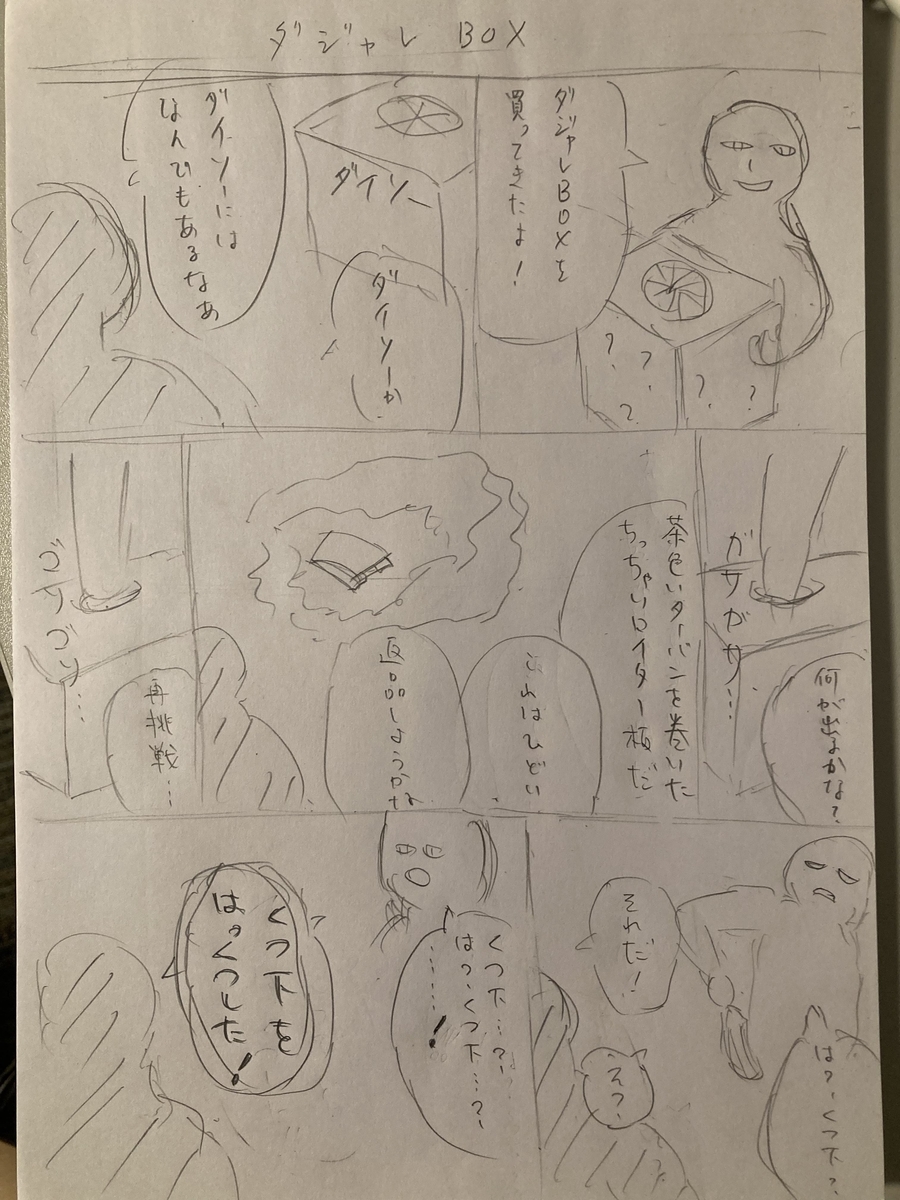 ダジャレ BOX
ダジャレBOXを
買ってきたよ!
ダイソー
ダイソーか
ダイソーには
なんでもあるなあ
何が出るかな?
ガサガサ…
茶色いターバンを巻いた
ちっちゃいロイター板だ
これはひどい
返品しようかな
ゴソゴソ…
再挑戦…
は?くつ下?
それだ!
え?
くつ下…?
はっ、くつ下…?
……!
くつ下を
はっくつした!